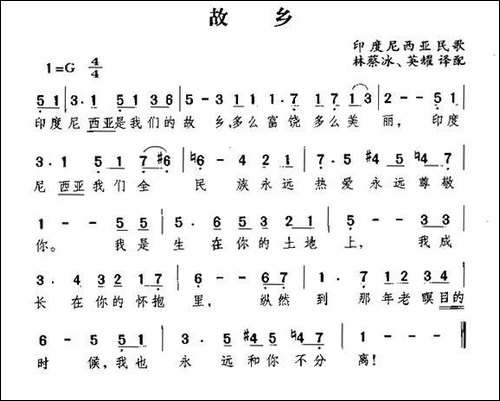 故 乡
印度尼西亚民歌
1=G 4/4
林蔡冰、英耀译配
5 1 | 3 · 1 5 1 3 6 | 5 - 3 1 1 · 7 1 7 1 3 | 2 - - 5 1 |
印度 尼 西亚是我们的 故 乡,多么富饶多么美 丽, 印度
3 · 1 5 1 7 #6 | ♮6 - 4 2 1 | 7 · 5 #4 5 ♮4 5 |
尼 西亚我们全 民 族永远 热爱永远尊敬
1 - - 5 5 | 5 · 6 5 4 3 2 | 1 - - 3 3 |
你。 我是 生 在你的土地 上, 我成
3 · 4 3 2 1 7 | 6 - - 6 6 | 1 · 7 1 2 3 4 |
长 在你的怀抱 里, 纵然 到 那年老暝目的
6 - 5 5 1 | 3 · #4 5 ♮4 7 | 1 - - - ‖
时 候,我也 永 远和你不分 离!